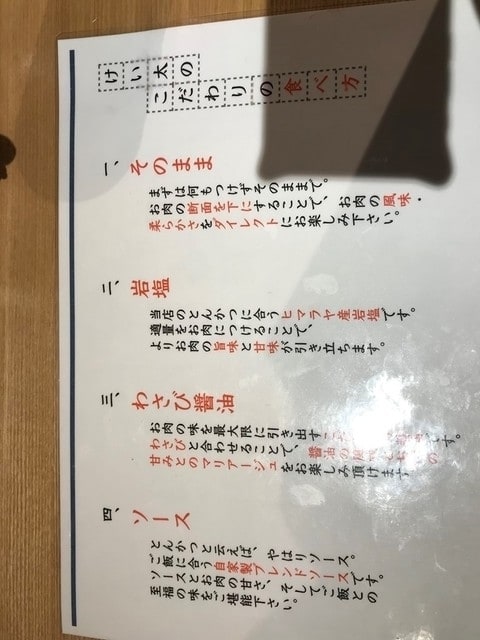 けい太の
こだわりの食べ方
一、そのまま
まずは何もつけずそのままで。
お肉の断面を下にすることで、お肉の風味・
柔らかさをダイレクトにお楽しみ下さい。
二、岩塩
当店のとんかつに合うヒマラヤ産岩塩です。
適量をお肉につけることで、
よりお肉の旨味と甘味が引き立ちます。
三、わさび醤油
お肉の味を最大限に引き出す です。
わさびと合わせることで、醤油の の
甘みとのマリアージュをお楽しみ頂けます
四、ソース
とんかつと云えば、やはりソース。
ご飯に合う自家製ブレンドソースです。
ソースとお肉の甘さ、そしてご飯との
至福の味をご堪能下さい。